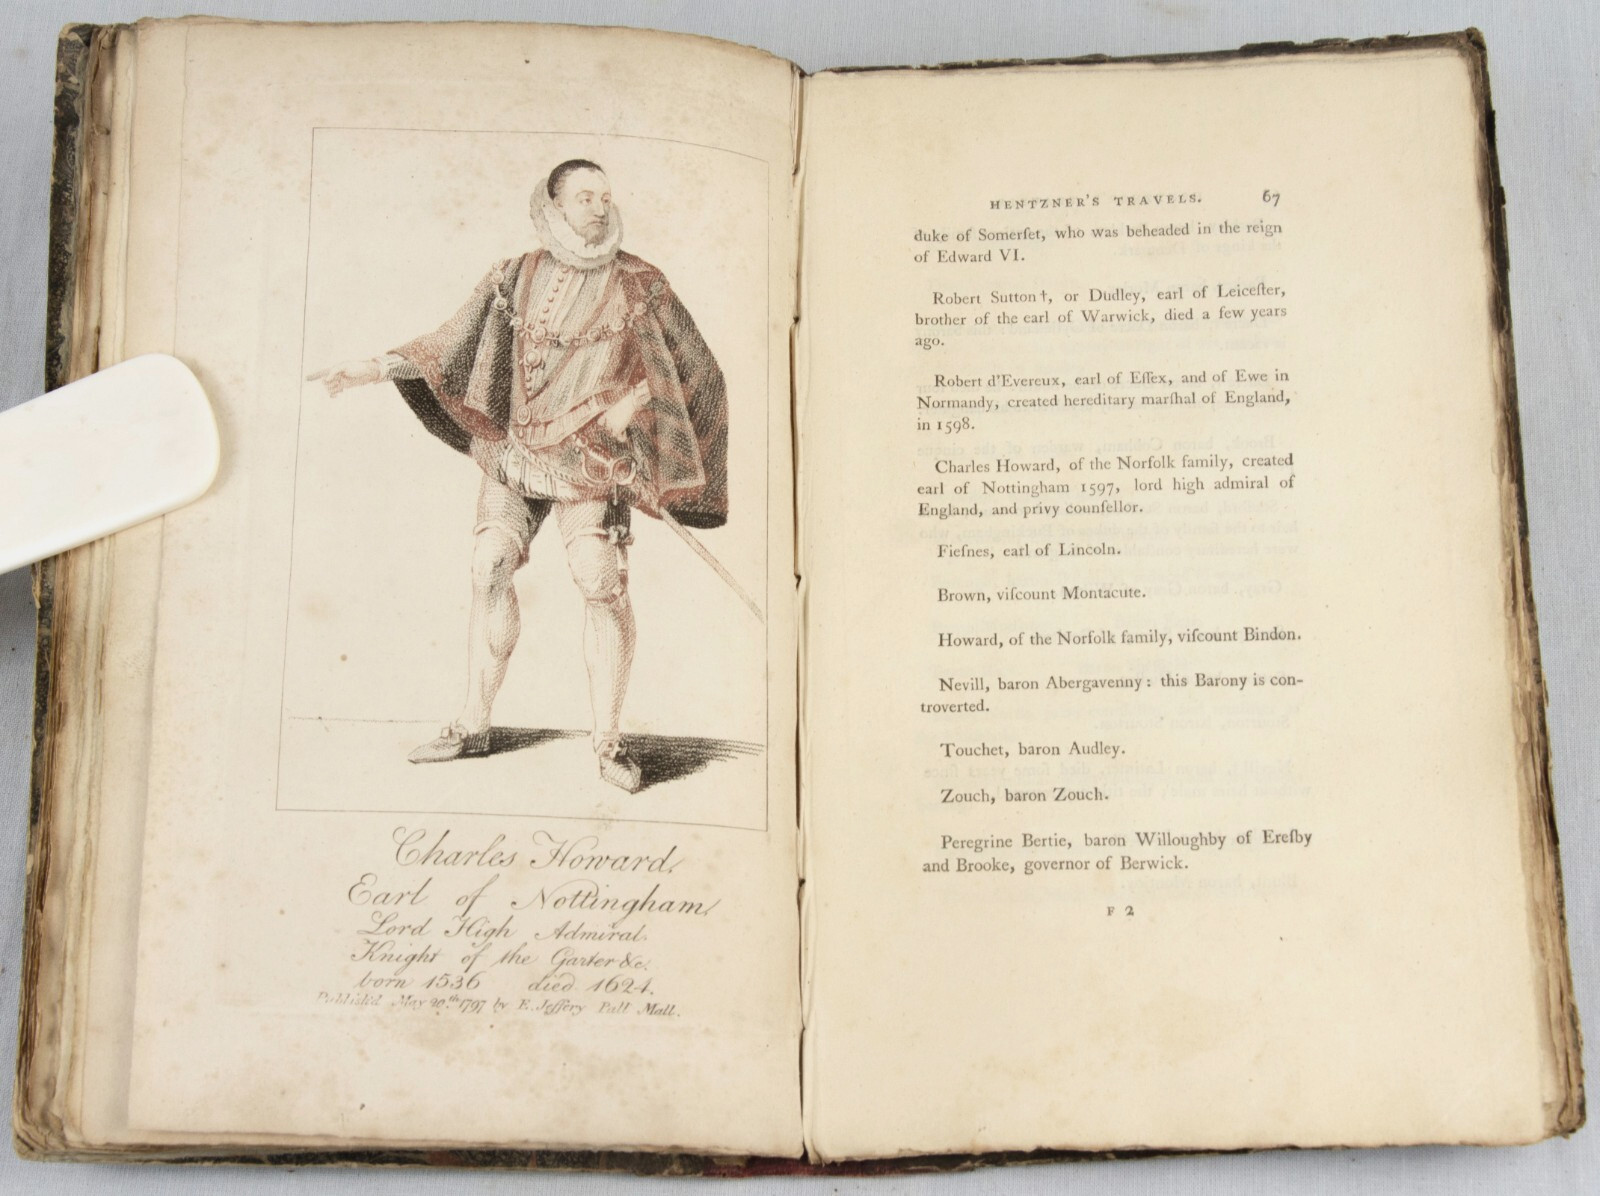 Charles Howard,
Earl of Nottingham,
Lord High Admiral.
Knight of the Garter &c.
born 1536 died 1624.
Publish'd May 20.th 1797 by E. Jeffery Pall Mall.
HENTZNER'S TRAVELS. 67
duke of Somerſet, who was beheaded in the reign
of Edward VI.
Robert Sutton†, or Dudley, earl of Leiceſter,
brother of the earl of Warwick, died a few years
ago.
Robert d'Evereux, earl of Eſſex, and of Ewe in
Normandy, created hereditary marſhal of England,
in 1598.
Charles Howard, of the Norfolk family, created
earl of Nottingham 1597, lord high admiral of
England, and privy counſellor.
Fieſnes, earl of Lincoln.
Brown, viſcount Montacute.
Howard, of the Norfolk family, viſcount Bindon.
Nevill, baron Abergavenny : this Barony is con-
troverted.
Touchet, baron Audley.
Zouch, baron Zouch.
Peregrine Bertie, baron Willoughby of Ereſby
and Brooke, governor of Berwick.
F 2